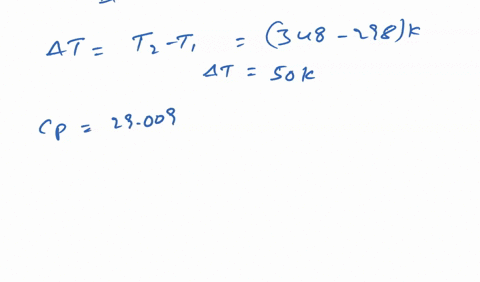 ΔT = T₂ - T₁ = (348 - 298)K
ΔT = 50K
Cp = 29.009